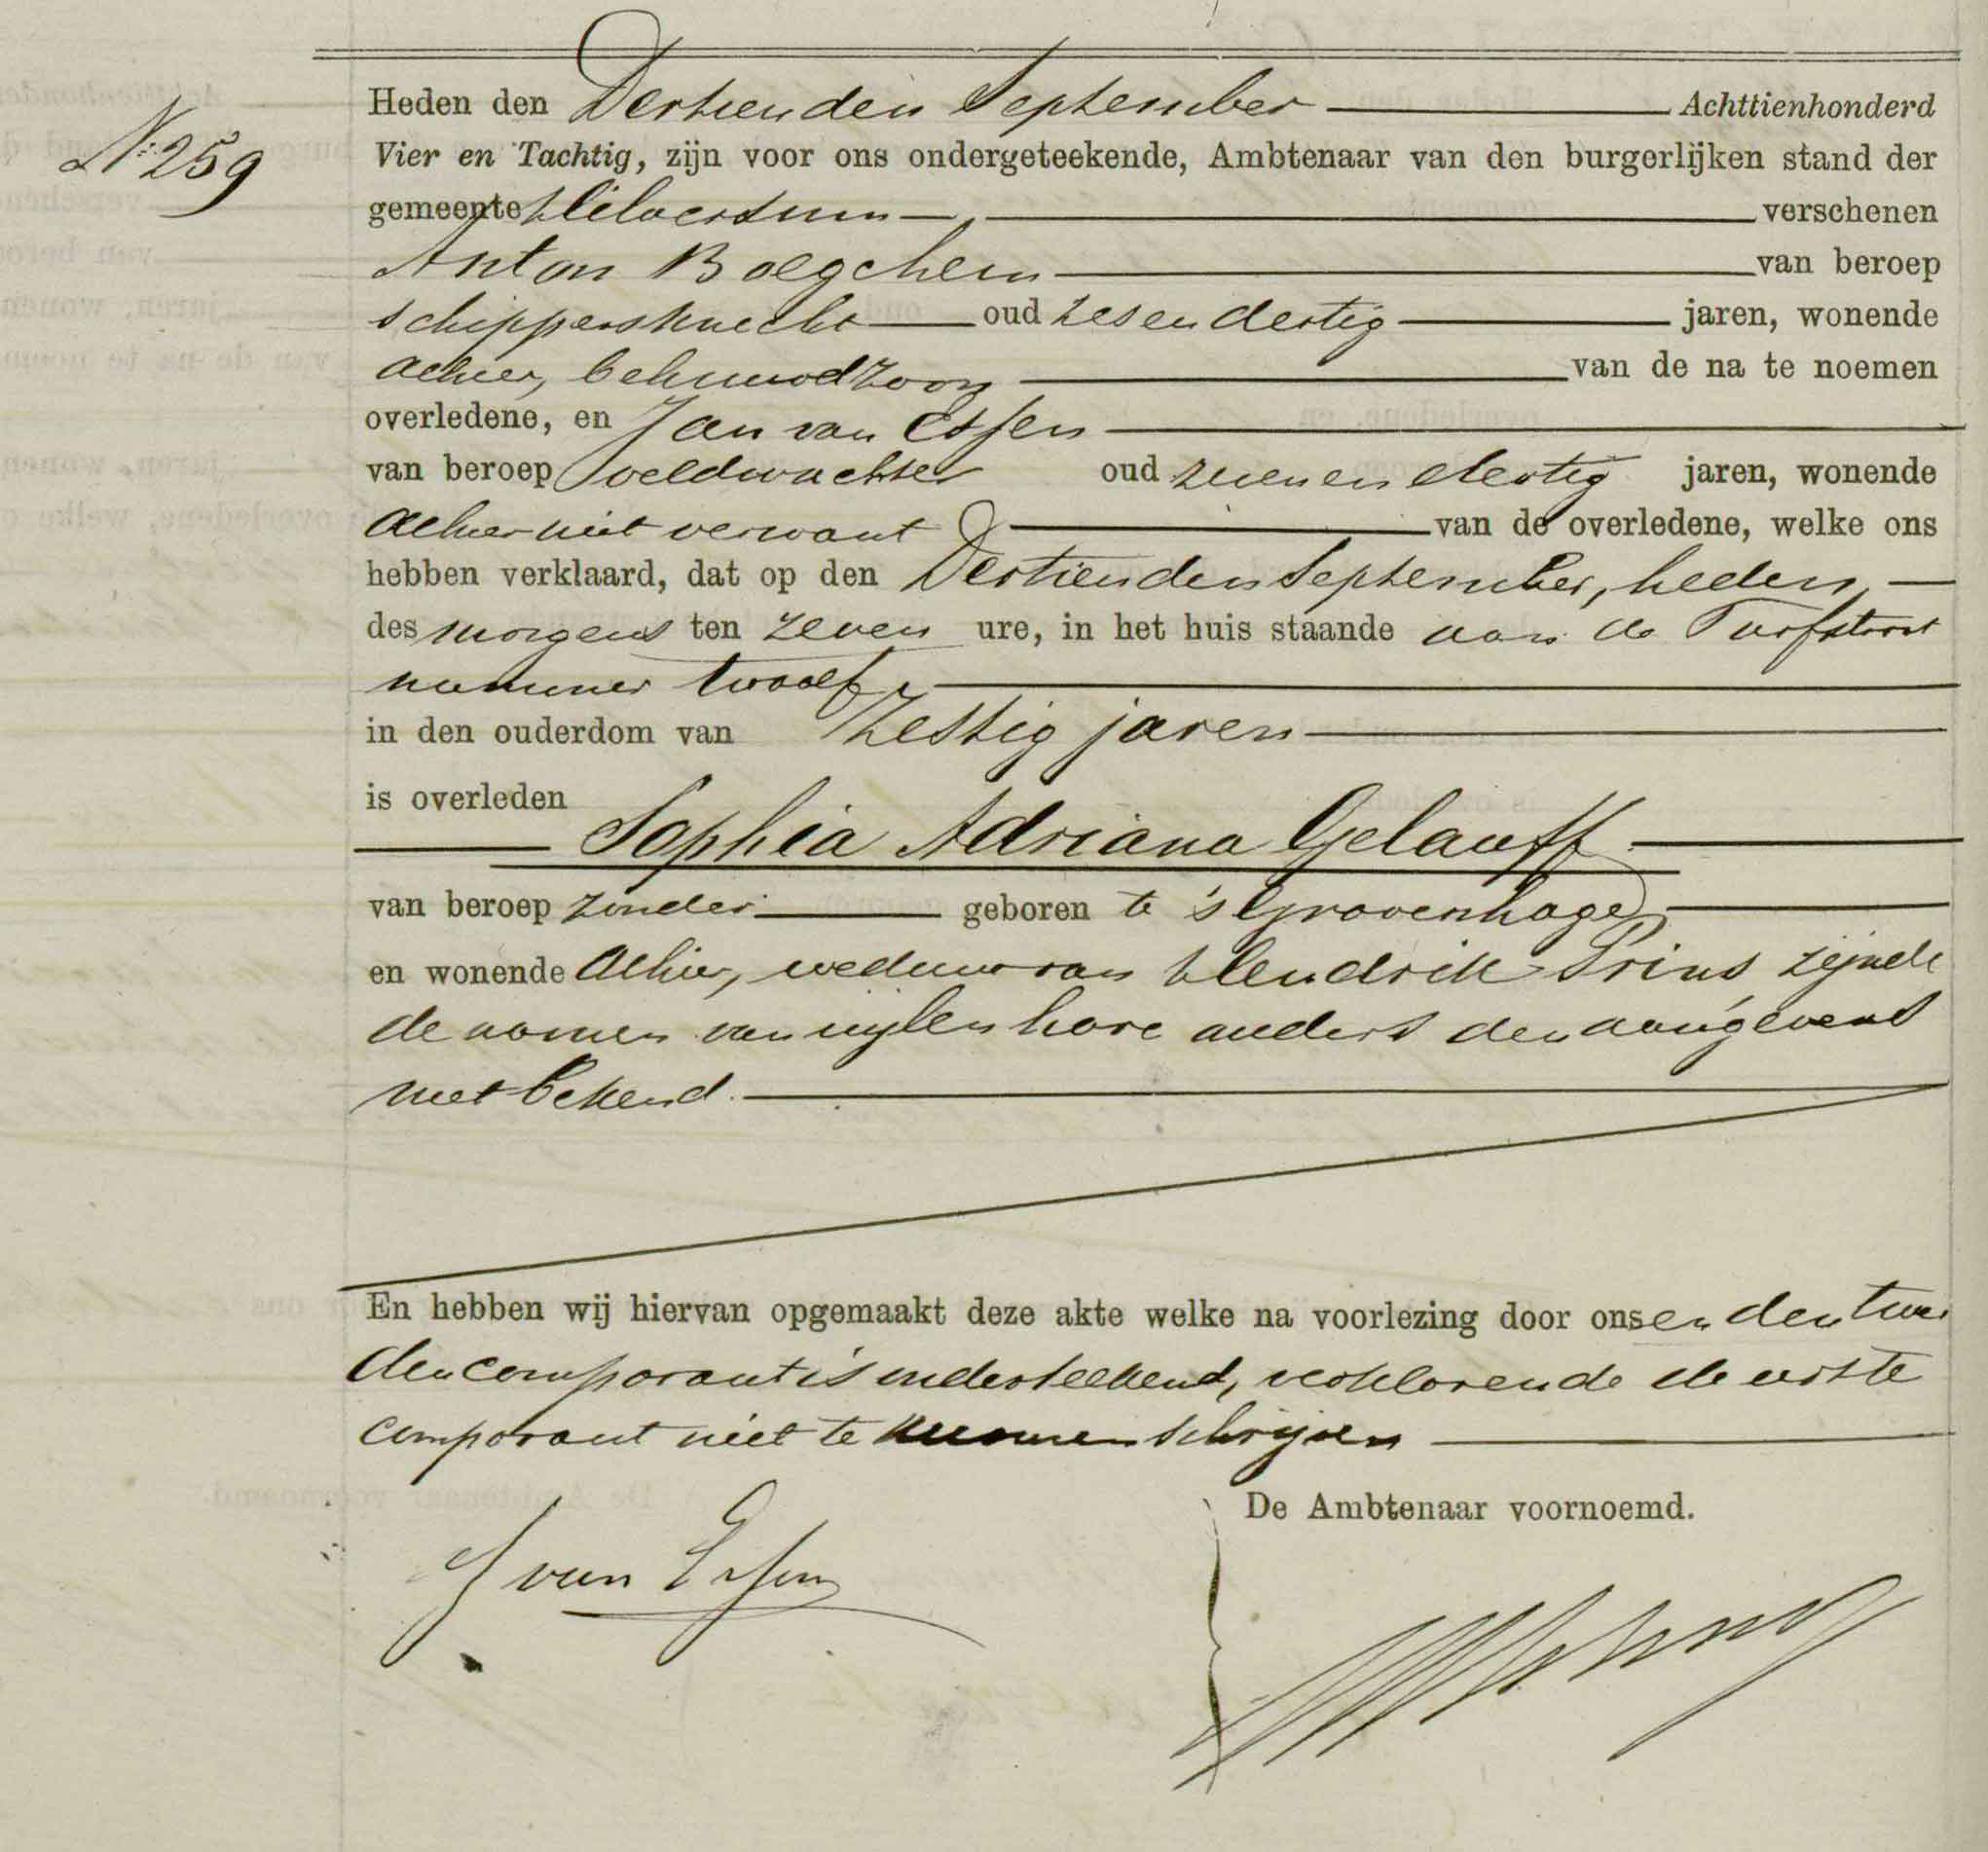 No 259
Heden den Dertienden September Achttienhonderd
Vier en Tachtig, zijn voor ons ondergeteekende, Ambtenaar van den burgerlijken stand der
gemeente Hilversum verschenen
Anton Boegchem van beroep
schippersknecht oud zesendertig jaren, wonende
alhier, behuwdzoon van de na te noemen
overledene, en Jan van Essen
van beroep veldwachter oud zevenendertig jaren, wonende
alhier niet verwant van de overledene, welke ons
hebben verklaard, dat op den Dertienden September, heden,
des morgens ten zeven ure, in het huis staande aan de Turfstraat
nummer twaalf,
in den ouderdom van Zestig jaren
is overleden
Sophia Adriana Gelauff
van beroep zonder geboren te 's Gravenhage,
en wonende alhier, weduwe van Hendrik Prins zijnde
de namen van wijlen hare ouders den aangevers
niet bekend.
En hebben wij hiervan opgemaakt deze akte welke na voorlezing door ons en den twee
den comparant is onderteekend, verklarende de eerste
comparant niet te kunnen schrijven
De Ambtenaar voornoemd.
J van Essen